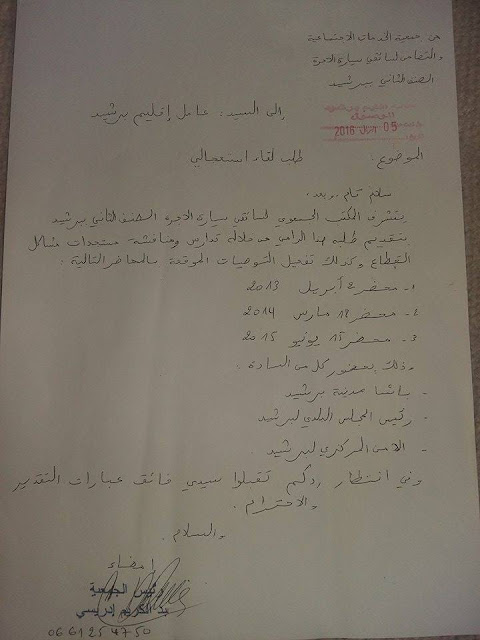 من جمعية الخدمات الاجتماعية
والتضامن لسائقي سيارة الاجرة
الصنف الثاني ببرشيد
إلى السيد: عامل إقليم برشيد
05 2016
الموضوع: طلب لقاء استعجالي
سلام تام، وبعد،
يتشرف المكتب الجمعوي لسائقي سيارة الاجرة الصنف الثاني برشيد
بتقديم طلبه هذا الرامي من خلاله تدارس ومناقشة مستجدات مشاكل
القطاع وكذلك تفعيل التوصيات الموقعة بالمحاضر التالية:
1- محضر 2 أبريل 2013
2- محضر 12 مارس 2014
3- محضر 15 يونيو 2015
وذلك بحضور كل من السادة:
- باشا مدينة برشيد
- رئيس المجلس البلدي لبرشيد
- الامن المركزي لبرشيد.
وفي انتظار ردكم تقبلوا سيدي فائق عبارات التقدير
والاحترام.
والسلام.
إمضاء
رئيس الجمعية
عبد الكريم إدريسي
0661254750